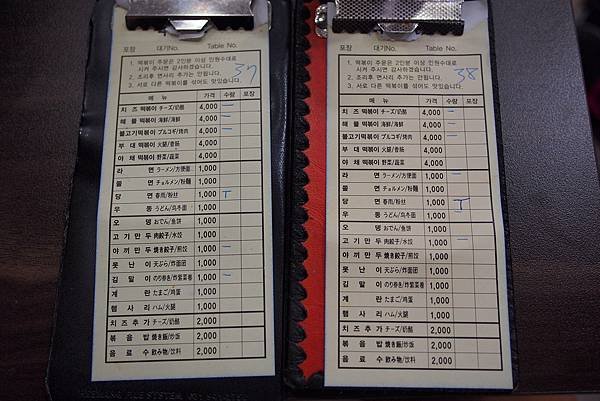 포장 대기No. Table No.
37
1. 떡볶이 주문은 2인분 이상 인원수대로
시켜 주시면 감사하겠습니다.
2. 조리후 면사리 추가는 안됩니다.
3. 서로 다른 떡볶이를 섞어도 맛있습니다.
메 뉴 가격 수량 포장
치 즈 떡볶이 チーズ/奶酪 4,000 一
해 물 떡볶이 海鮮/海鲜 4,000 一
불고기떡볶이 プルコギ/烤肉 4,000 一
부 대 떡볶이 火腿/香肠 4,000
야 채 떡볶이 野菜/蔬菜 4,000
라 면 ラーメン/方便面 1,000
쫄 면 チョルメン/粉麵 1,000
당 면 春雨/粉丝 1,000 T
우 동 うどん/乌冬面 1,000
오 뎅 おでん/鱼饼 1,000
고 기 만 두 肉餃子/水饺 1,000 一
야 끼 만 두 焼き餃子/煎饺 1,000
못 난 이 天ぷら/炸面团 1,000
김 말 이 のり巻き/炸紫菜卷 1,000 一
계 란 たまご/鸡蛋 1,000
햄 사 리 ハム/火腿 1,000
치 즈 추 가 チーズ/奶酪 2,000
볶 음 밥 焼き飯/炒饭 2,000
음 료 수 飲み物/饮料 2,000
포장 대기No. Table No.
38
1. 떡볶이 주문은 2인분 이상 인원수대로
시켜 주시면 감사하겠습니다.
2. 조리후 면사리 추가는 안됩니다.
3. 서로 다른 떡볶이를 섞어도 맛있습니다.
메 뉴 가격 수량 포장
치 즈 떡볶이 チーズ/奶酪 4,000 一
해 물 떡볶이 海鮮/海鲜 4,000 一
불고기떡볶이 プルコギ/烤肉 4,000 一
부 대 떡볶이 火腿/香肠 4,000
야 채 떡볶이 野菜/蔬菜 4,000
라 면 ラーメン/方便面 1,000 一
쫄 면 チョルメン/粉麵 1,000
당 면 春雨/粉丝 1,000 T
우 동 うどん/乌冬面 1,000
오 뎅 おでん/鱼饼 1,000
고 기 만 두 肉餃子/水饺 1,000 一
야 끼 만 두 焼き餃子/煎饺 1,000
못 난 이 天ぷら/炸面团 1,000
김 말 이 のり巻き/炸紫菜卷 1,000
계 란 たまご/鸡蛋 1,000
햄 사 리 ハム/火腿 1,000
치 즈 추 가 チーズ/奶酪 2,000
볶 음 밥 焼き飯/炒饭 2,000
음 료 수 飲み物/饮料 2,000